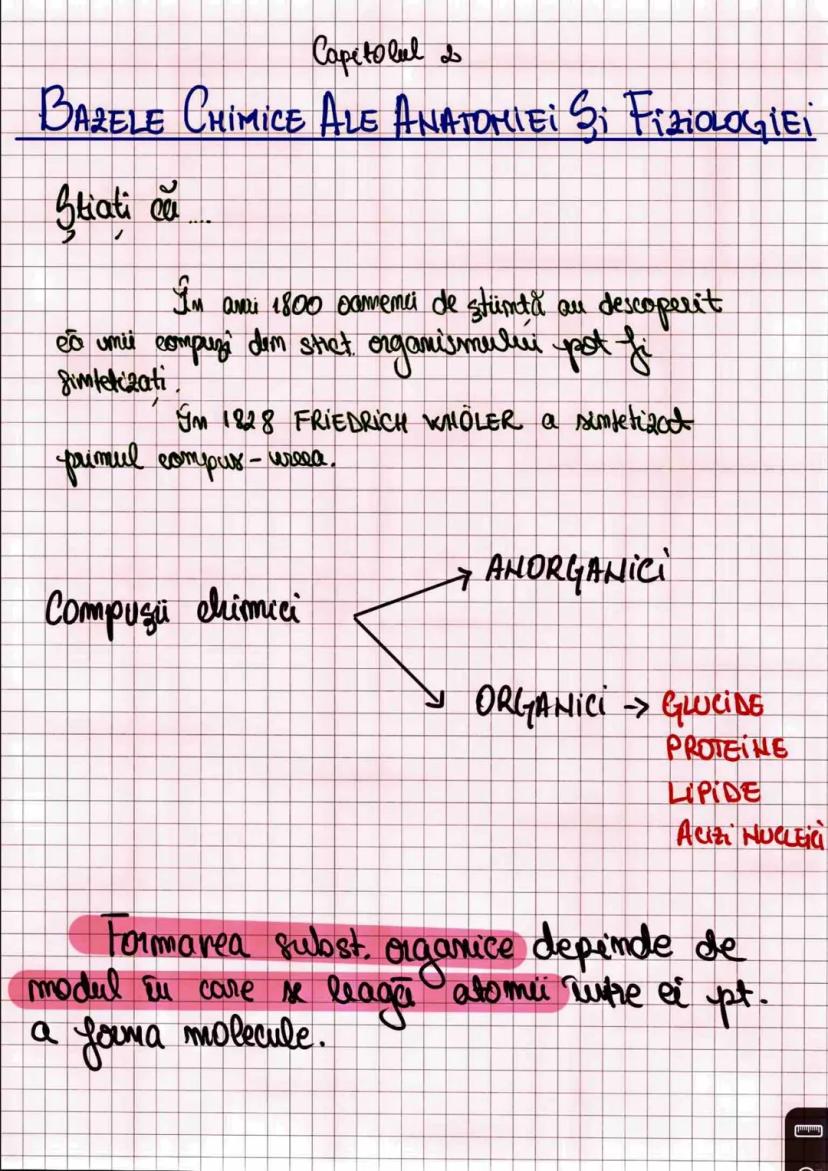 Capitolul 2
BAZELE CHIMICE ALE ANATOMIEI Și FIZIOLOGIEI
Știați că ....
În anii 1800 oamenii de știință au descoperit
că unii compuși din strct. organismului pot fi
sintetizați.
În 1828 FRIEDRICH WHÖLER a sintetizat
primul compus - ureea.
ANORGANICI
Compușii chimici
ORGANICI -> GLUCIDE
PROTEINE
LIPIDE
ACIZI NUCLEICI
Formarea subst. organice depinde de
modul în care se leagă atomii între ei pt.
a forma molecule.